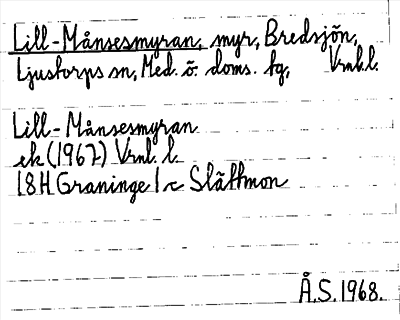 Lill-Månsesmyran, myr, Bredsjön,
Ljustorps sn, Med. ö. doms. tg, Vrnl.l.
Lill-Månsesmyran
ek (1967) Vrnl. l.
18H Graninge 1 c Slättmon
Å.S. 1968.